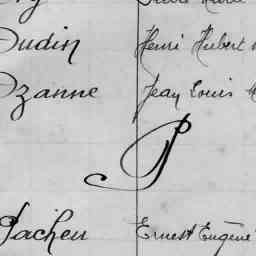 Oudin Henri Hubert
Ozanne Jean Louis
P
Pacheu Ernest Eugène